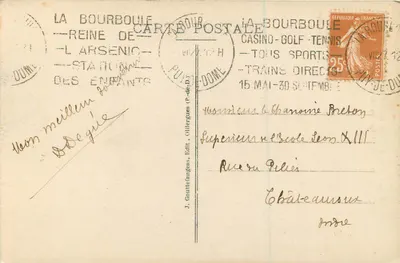 CARTE POSTALE
LA BOURBOULE
REINE DE
L'ARSENIC
STATION
DES ENFANTS
PUY-DE-DOME
LA BOURBOULE
CASINO-GOLF-TENNIS
TOUS SPORTS
TRAINS DIRECTS
15 MAI-30 SEPTEMBRE
25
Mon meilleur
souvenir
Monsieur le Chanoine Breton
Supérieur de l'Ecole Léon XIII
Rue du Palais
Châteauroux
Indre